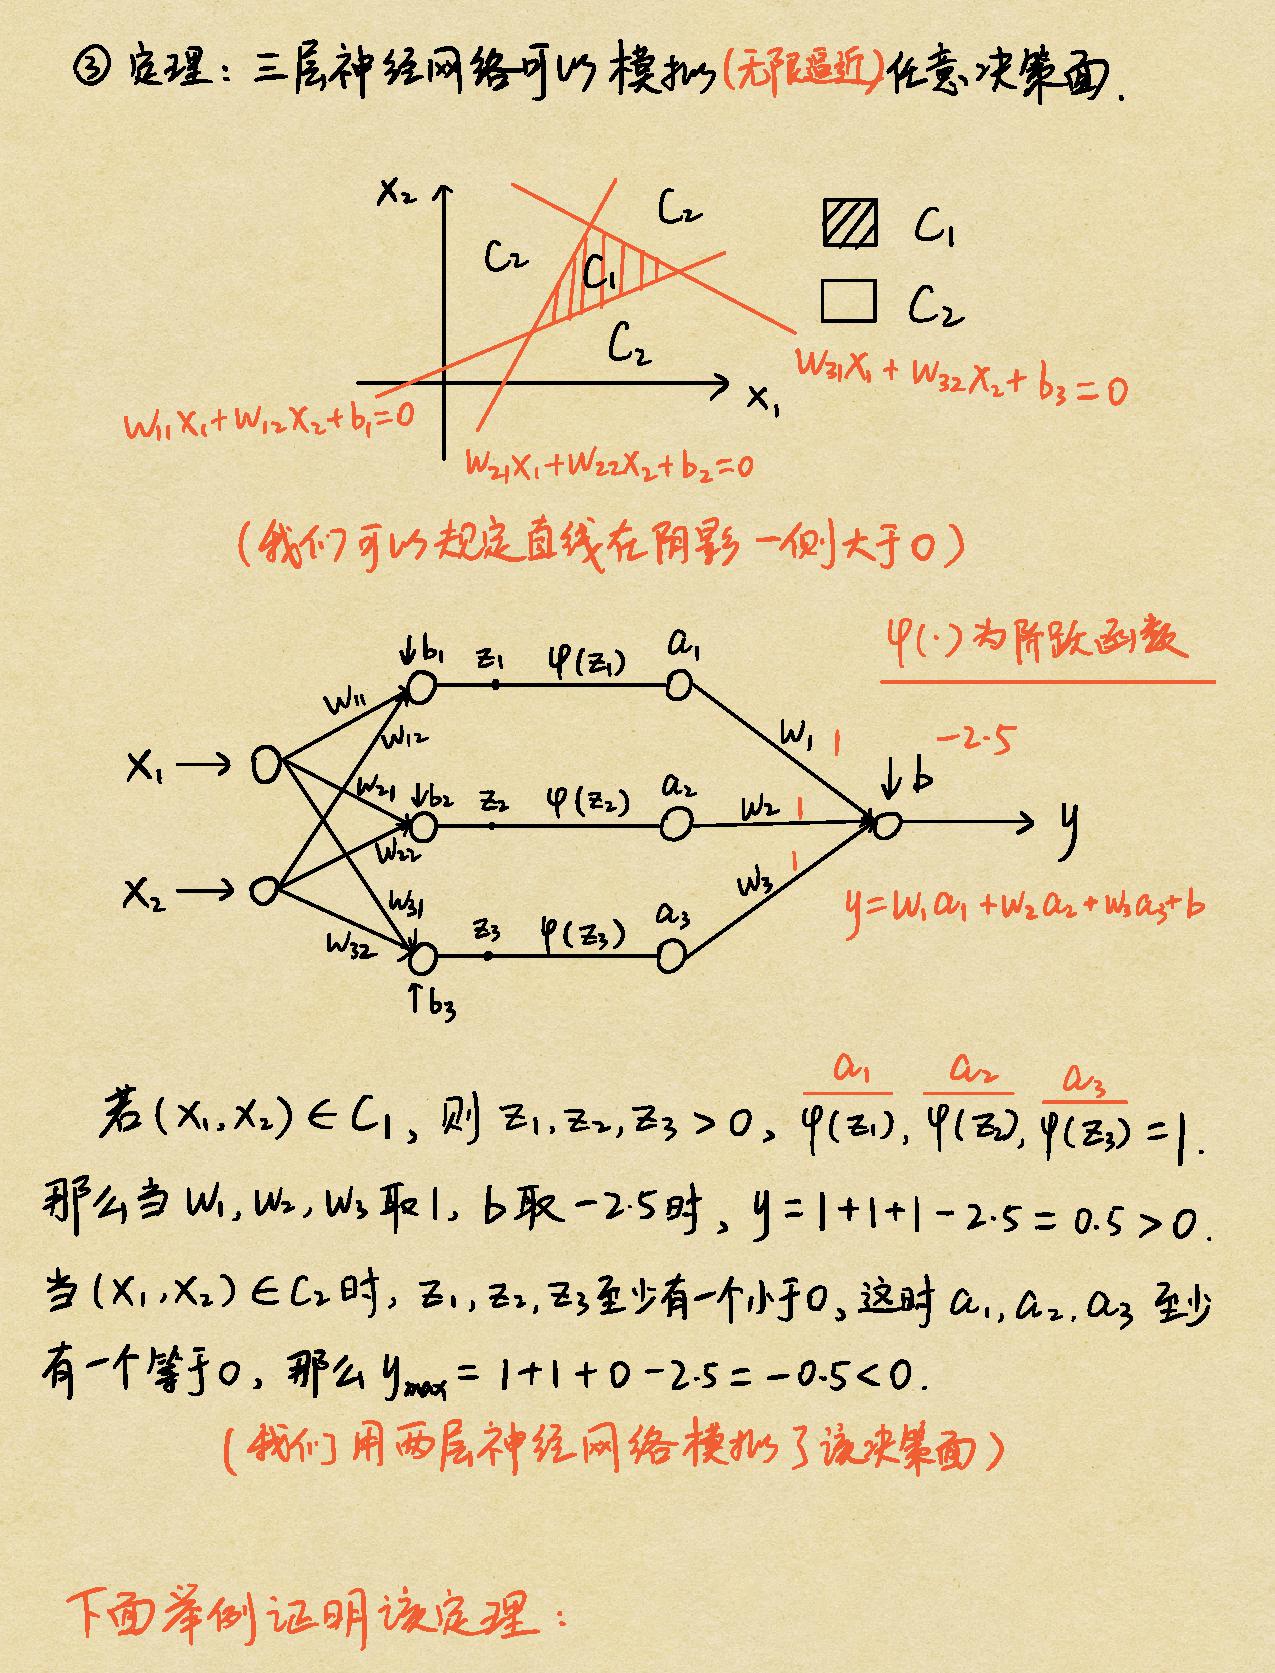 ③ 定理：三层神经网络可以模拟(无限逼近)任意决策面.
x₂
C₂
C₂
C₁
C₂
C₁
C₂
x₁
w₃₁x₁+w₃₂x₂+b₃=0
w₁₁x₁+w₁₂x₂+b₁=0
w₂₁x₁+w₂₂x₂+b₂=0
(我们可以规定直线在阴影一侧大于0)
φ(·)为阶跃函数
↓b₁ z₁ φ(z₁) a₁
w₁₁
w₁₂
w₁ 1
-2.5
x₁→
w₂₁ ↓b₂ z₂ φ(z₂) a₂
w₂ 1
↓b
y
w₂₂
x₂→
w₃₁
w₃₂
z₃ φ(z₃) a₃
w₃ 1
y=w₁a₁+w₂a₂+w₃a₃+b
↑b₃
a₁ a₂ a₃
若(x₁,x₂)∈C₁, 则 z₁,z₂,z₃>0, φ(z₁), φ(z₂), φ(z₃)=1.
那么当w₁,w₂,w₃取1, b取-2.5时, y=1+1+1-2.5=0.5>0.
当(x₁,x₂)∈C₂时, z₁,z₂,z₃至少有一个小于0,这时a₁,a₂,a₃至少
有一个等于0, 那么yₘₐₓ=1+1+0-2.5=-0.5<0.
(我们用两层神经网络模拟了该决策面)
下面举例证明该定理：